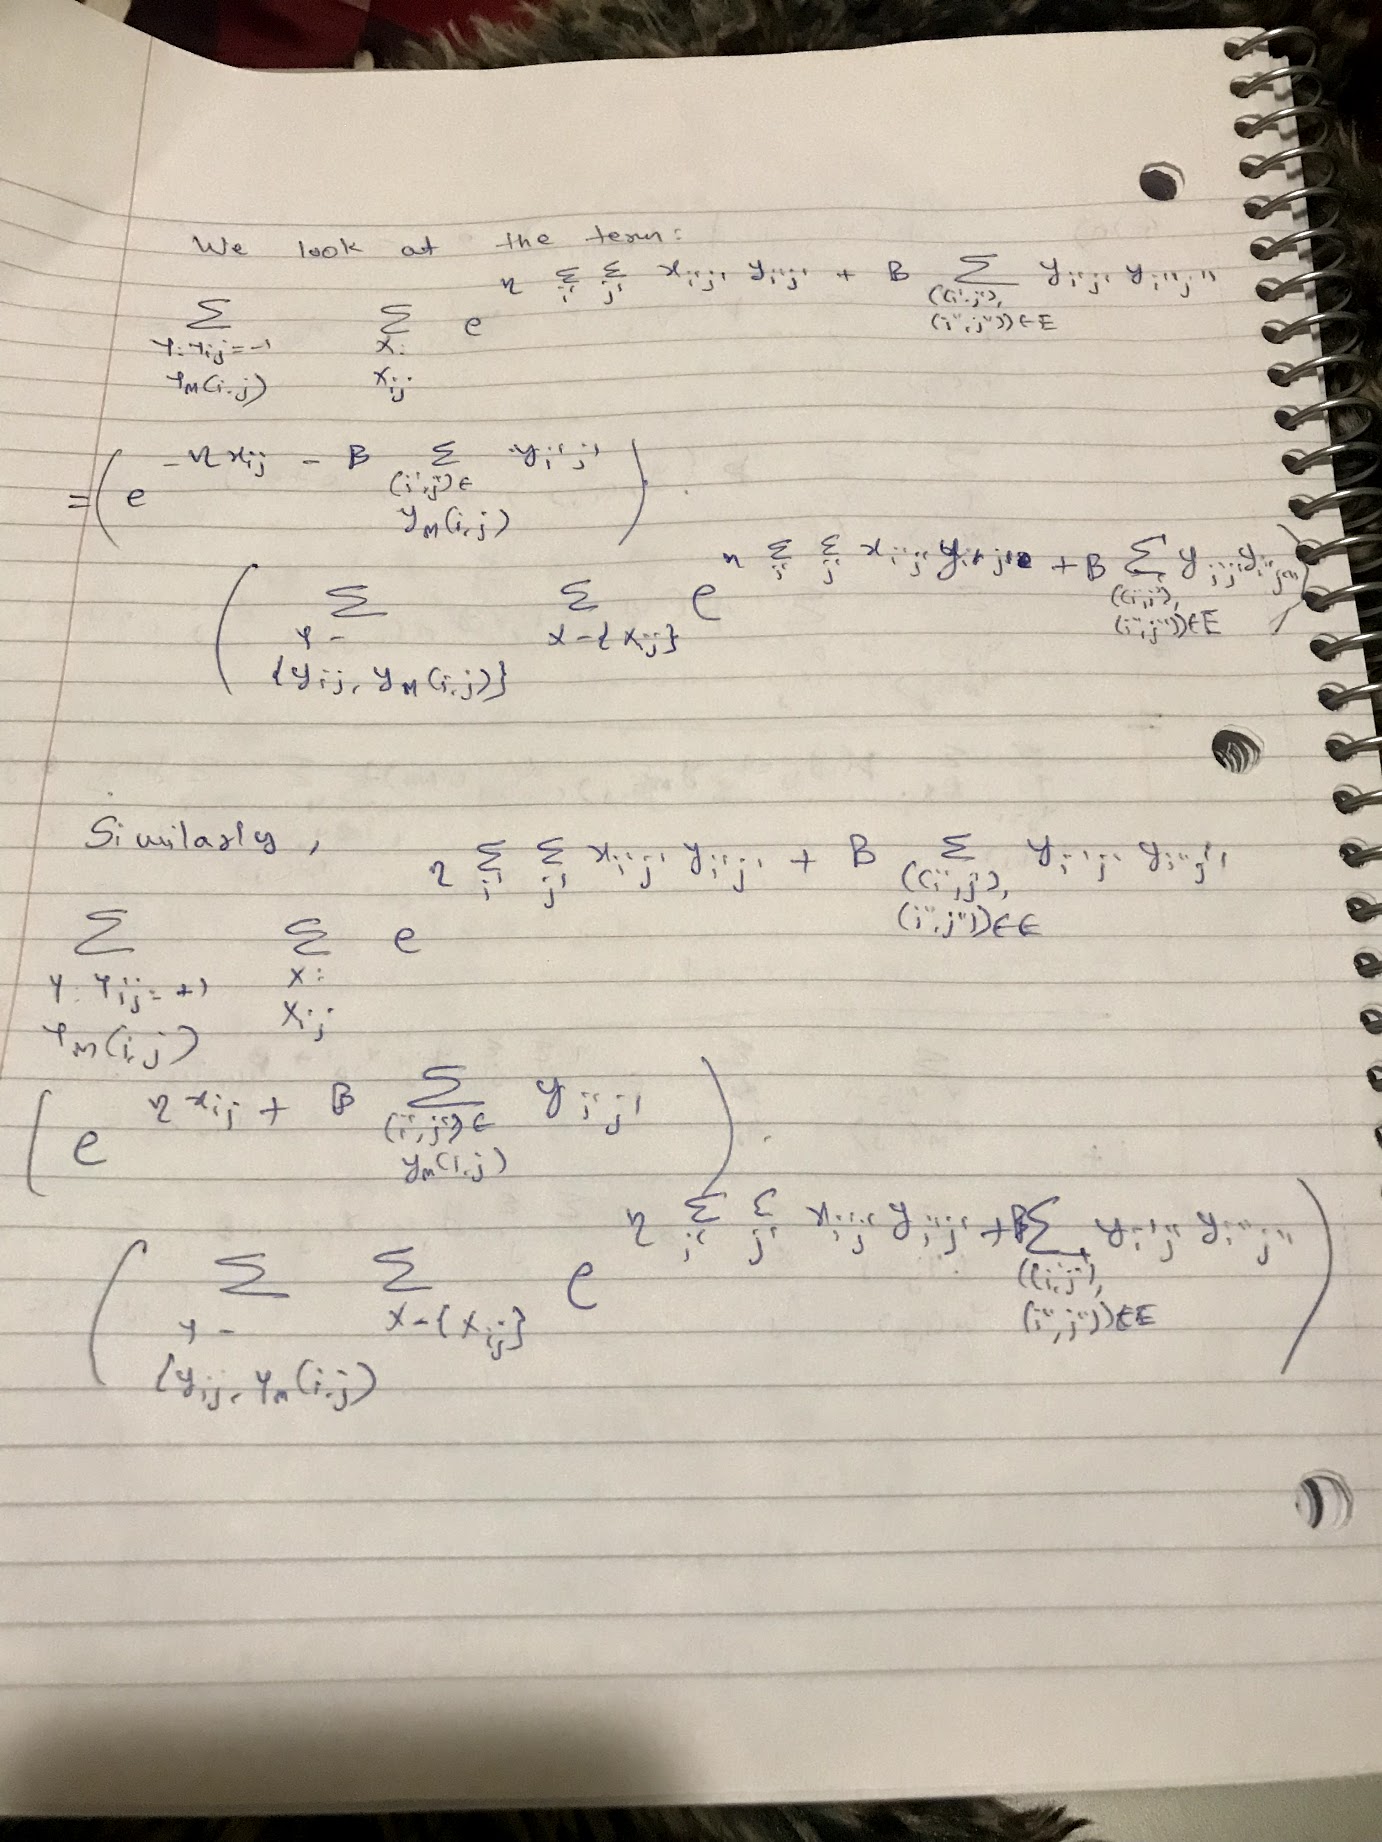 We look at the term:
Σ_{Y: Y_{ij} = -1, Y_M(i,j)} Σ_{X: X_{ij}} e^{η Σ_{i'} Σ_{j'} x_{i'j'} y_{i'j'} + B Σ_{((i',j'), (i'',j'')) ∈ E} y_{i'j'} y_{i''j''}}
= ( e^{-η x_{ij} - B Σ_{(i',j') ∈ y_M(i,j)} y_{i'j'}} ) .
( Σ_{Y - {y_{ij}, y_M(i,j)}} Σ_{X - {X_{ij}}} e^{η Σ_{i'} Σ_{j'} x_{i'j'} y_{i'j'} + B Σ_{((i',j'), (i'',j'')) ∈ E} y_{i'j'} y_{i''j''}} )
Similarly,
Σ_{Y: Y_{ij} = +1, Y_M(i,j)} Σ_{X: X_{ij}} e^{η Σ_{i'} Σ_{j'} x_{i'j'} y_{i'j'} + B Σ_{((i',j'), (i'',j'')) ∈ E} y_{i'j'} y_{i''j''}}
( e^{η x_{ij} + B Σ_{(i',j') ∈ y_M(i,j)} y_{i'j'}} ) .
( Σ_{Y - {y_{ij}, y_M(i,j)} Σ_{X - {X_{ij}}} e^{η Σ_{i'} Σ_{j'} x_{i'j'} y_{i'j'} + B Σ_{((i',j'), (i'',j'')) ∈ E} y_{i'j'} y_{i''j''}} )